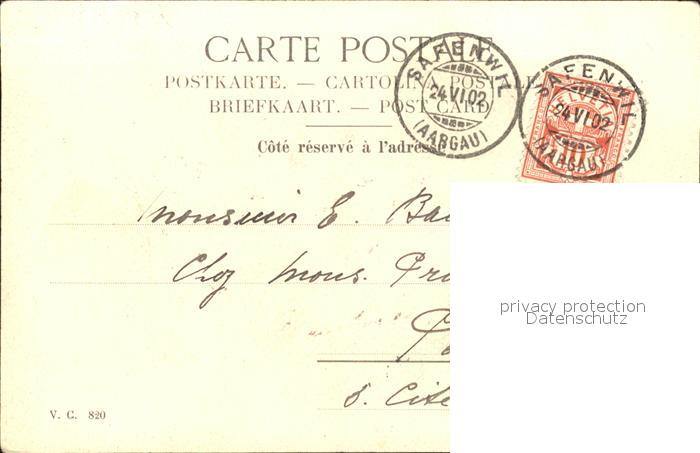 CARTE POSTALE
POSTKARTE. — CARTOLINA POSTALE
BRIEFKAART. — POST CARD
Côté réservé à l'adresse
SAFENWIL
24.VI.02
(AARGAU)
SAFENWIL
24.VI.02
(AARGAU)
Monsieur E. Ba
Chez Mons.
privacy protection
Datenschutz
V. G. 820